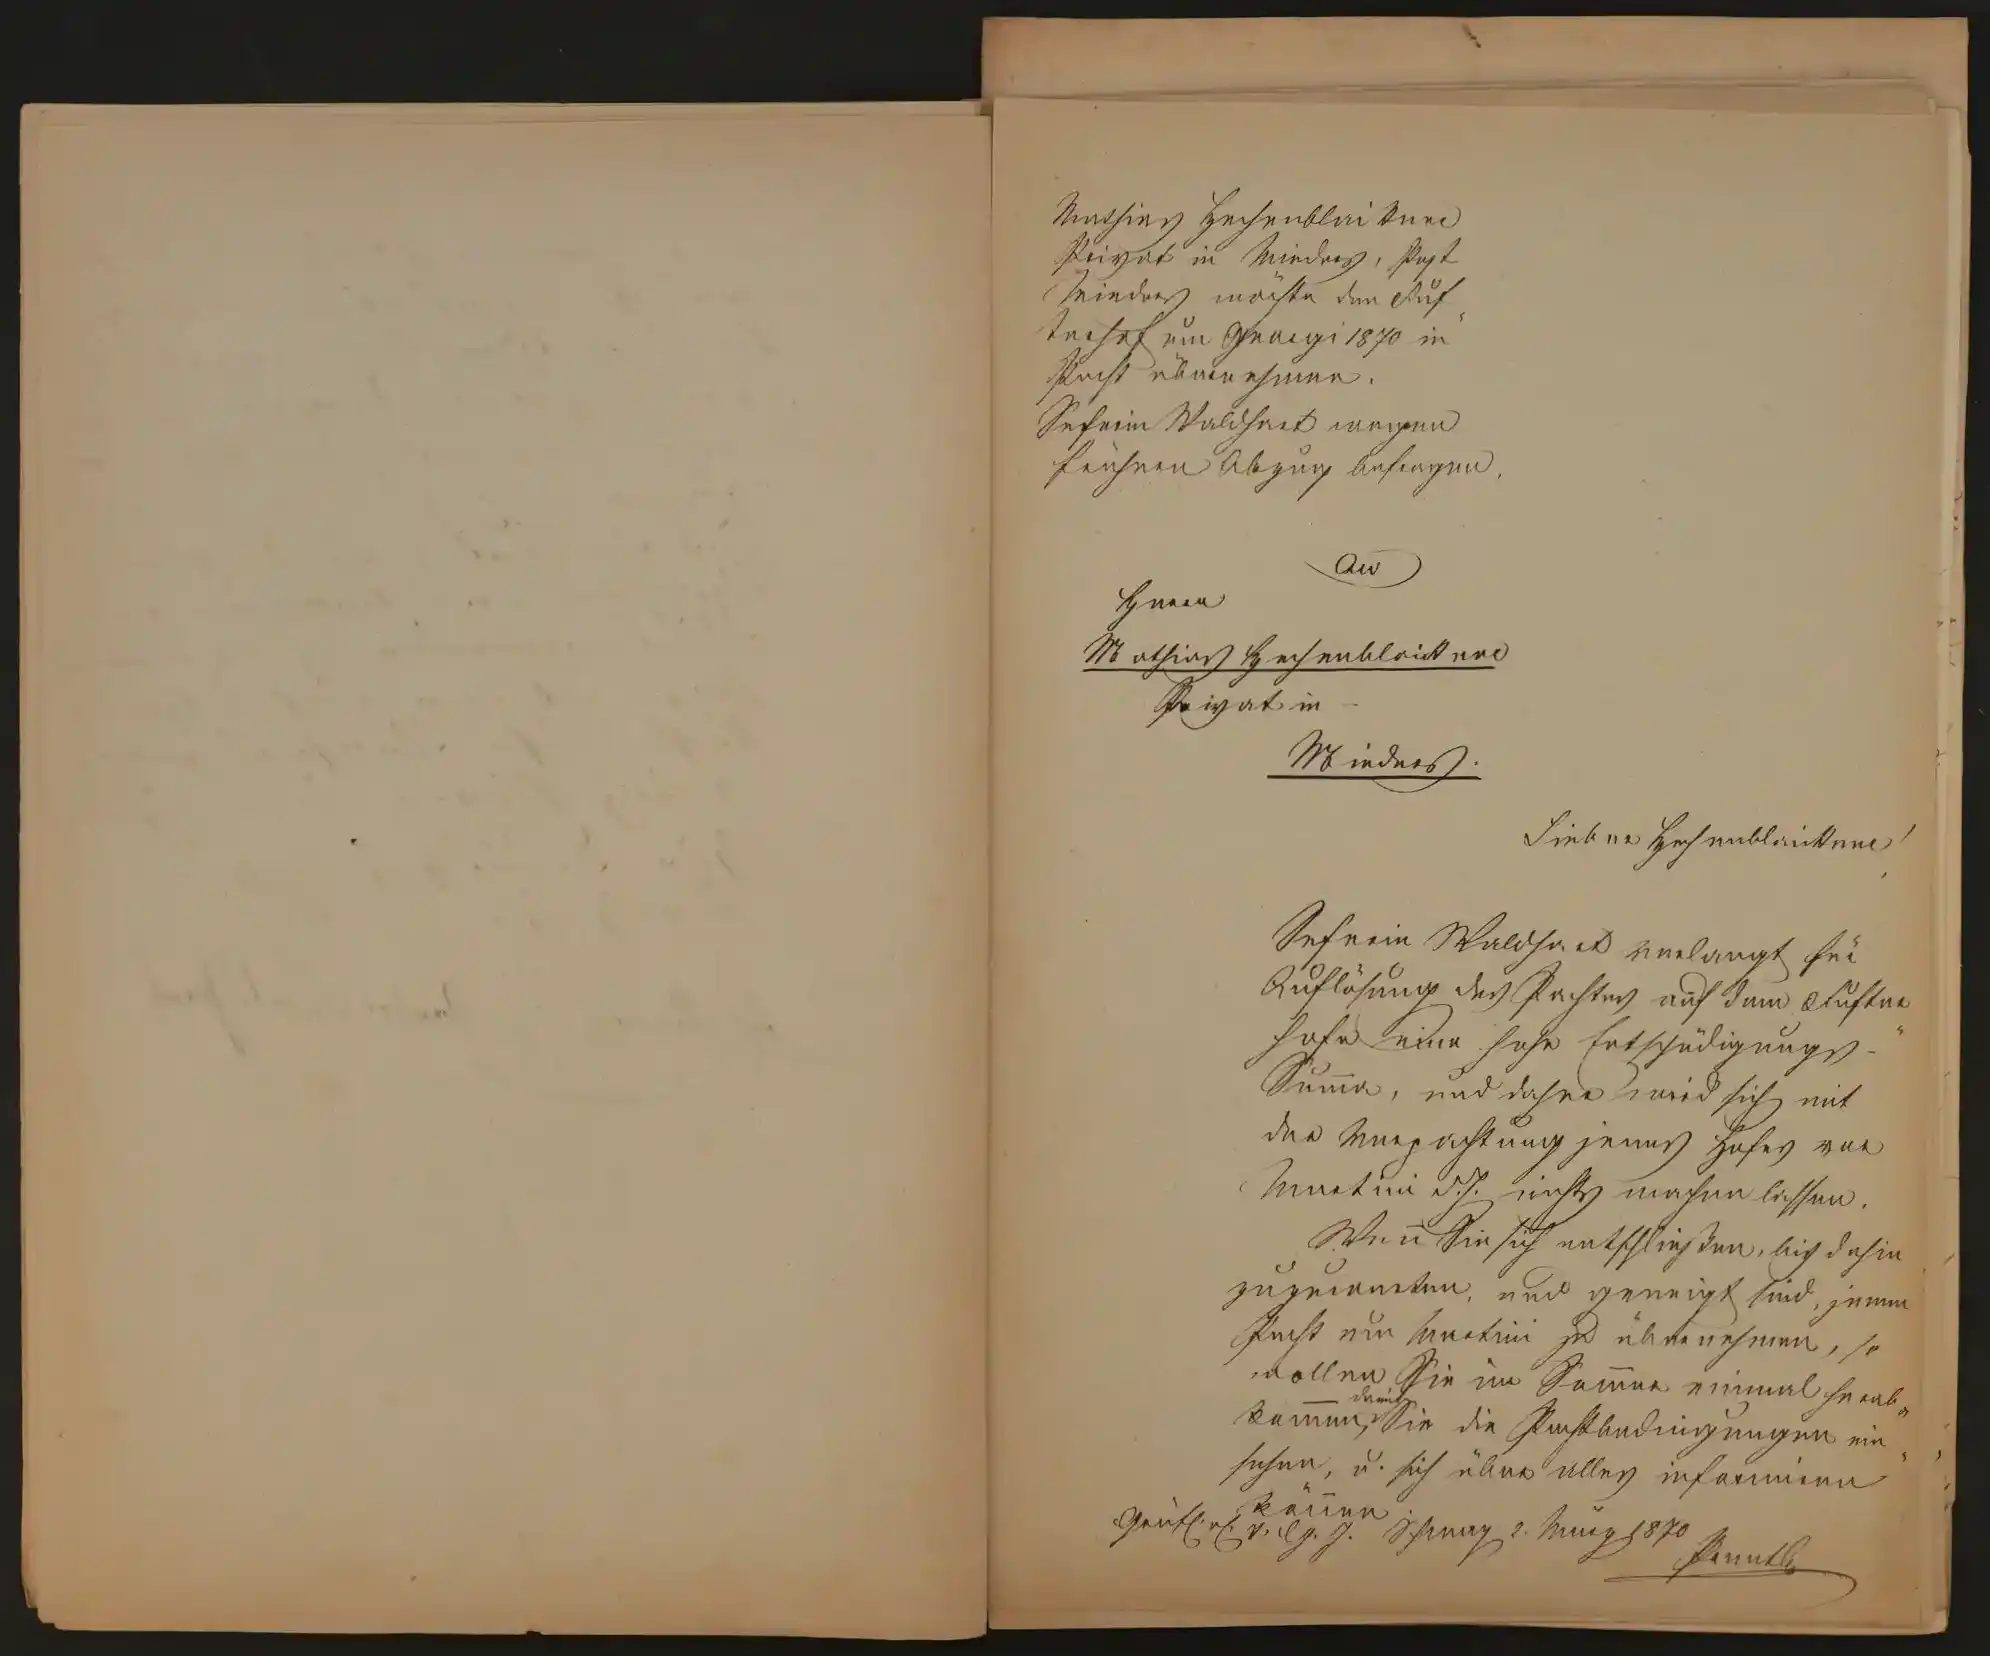 Mathias Hechenblaickner
Privat in Mieders, Post
Mieders möchte den Auf
terhof um Georgi 1870 in
Pacht übernehmen.
Sefrein Waldhart wegen
früheren Abzug befragen.
An
Herrn
Mathias Hechenblaickner
Privat in
Mieders.
Lieber Hechenblaickner!
Sefrein Waldhart verlangt für
Auflösung des Pachtes auf dem Aufter
hofe eine hohe Entschädigungs-
Summa, und daher wird sich mit
der Verpachtung jenes Hofes vor
Martini d. J. nichts machen lassen.
Wenn Sie sich entschließen, bis dahin
zuzuwarten, und geneigt sind, jenen
Pacht um Martini zu übernehmen, so
wollen Sie im Sommer einmal herab-
kommen, damit Sie die Pachtbedingungen ein
sehen, u. sich über alles informieren
können.
Schwaz 2. März 1870